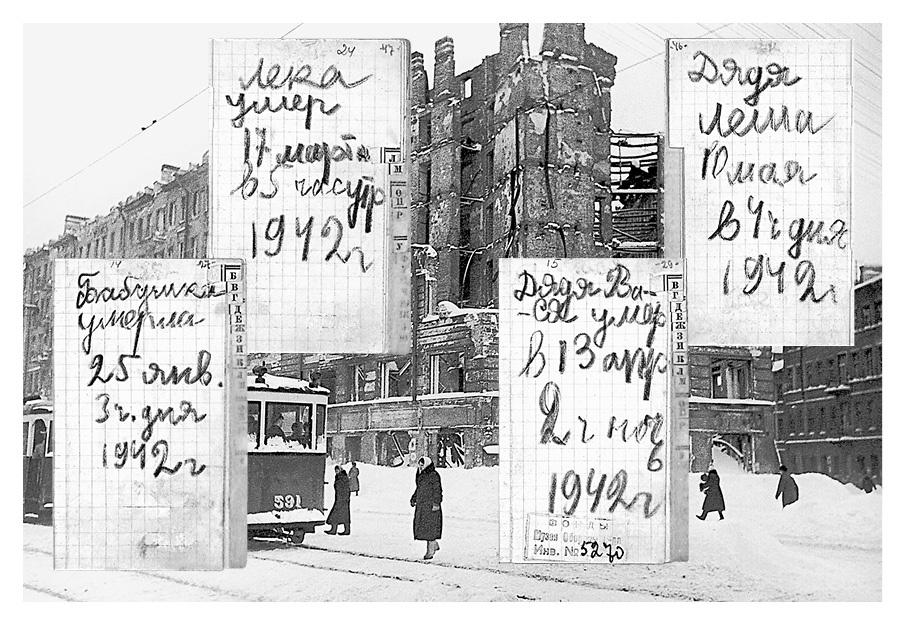 24 47
Лека
умер
17 марта
в 5 час утр
1942 г
46
Дядя
Леша
10 мая
в 4 ч дня
1942 г
14
Бабушка
умерла
25 янв.
3 ч. дня
1942 г
БВГДЕЖЗИК
15 29
Дядя Ва-
-ся умер
в 13 апр
2 ч ноч
ь
1942 г
ФОНДЫ
Музея
Инв. № 5270
ВГДЕЖЗИКЛМ
591